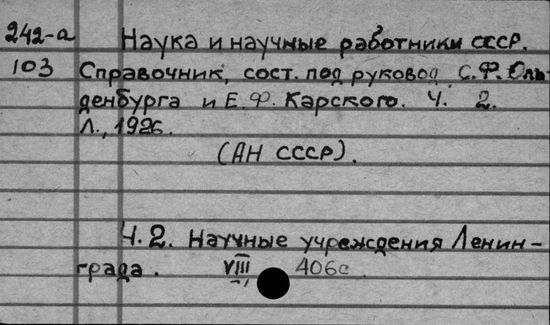 242-а Наука и научные работники СССР.
103 Справочник, сост. под руковод. С.Ф. Оль-
денбурга и Е.Ф. Карского. Ч. 2.
Л., 1926.
(АН СССР).
Ч. 2. Научные учреждения Ленин-
града. VIII, 406с.